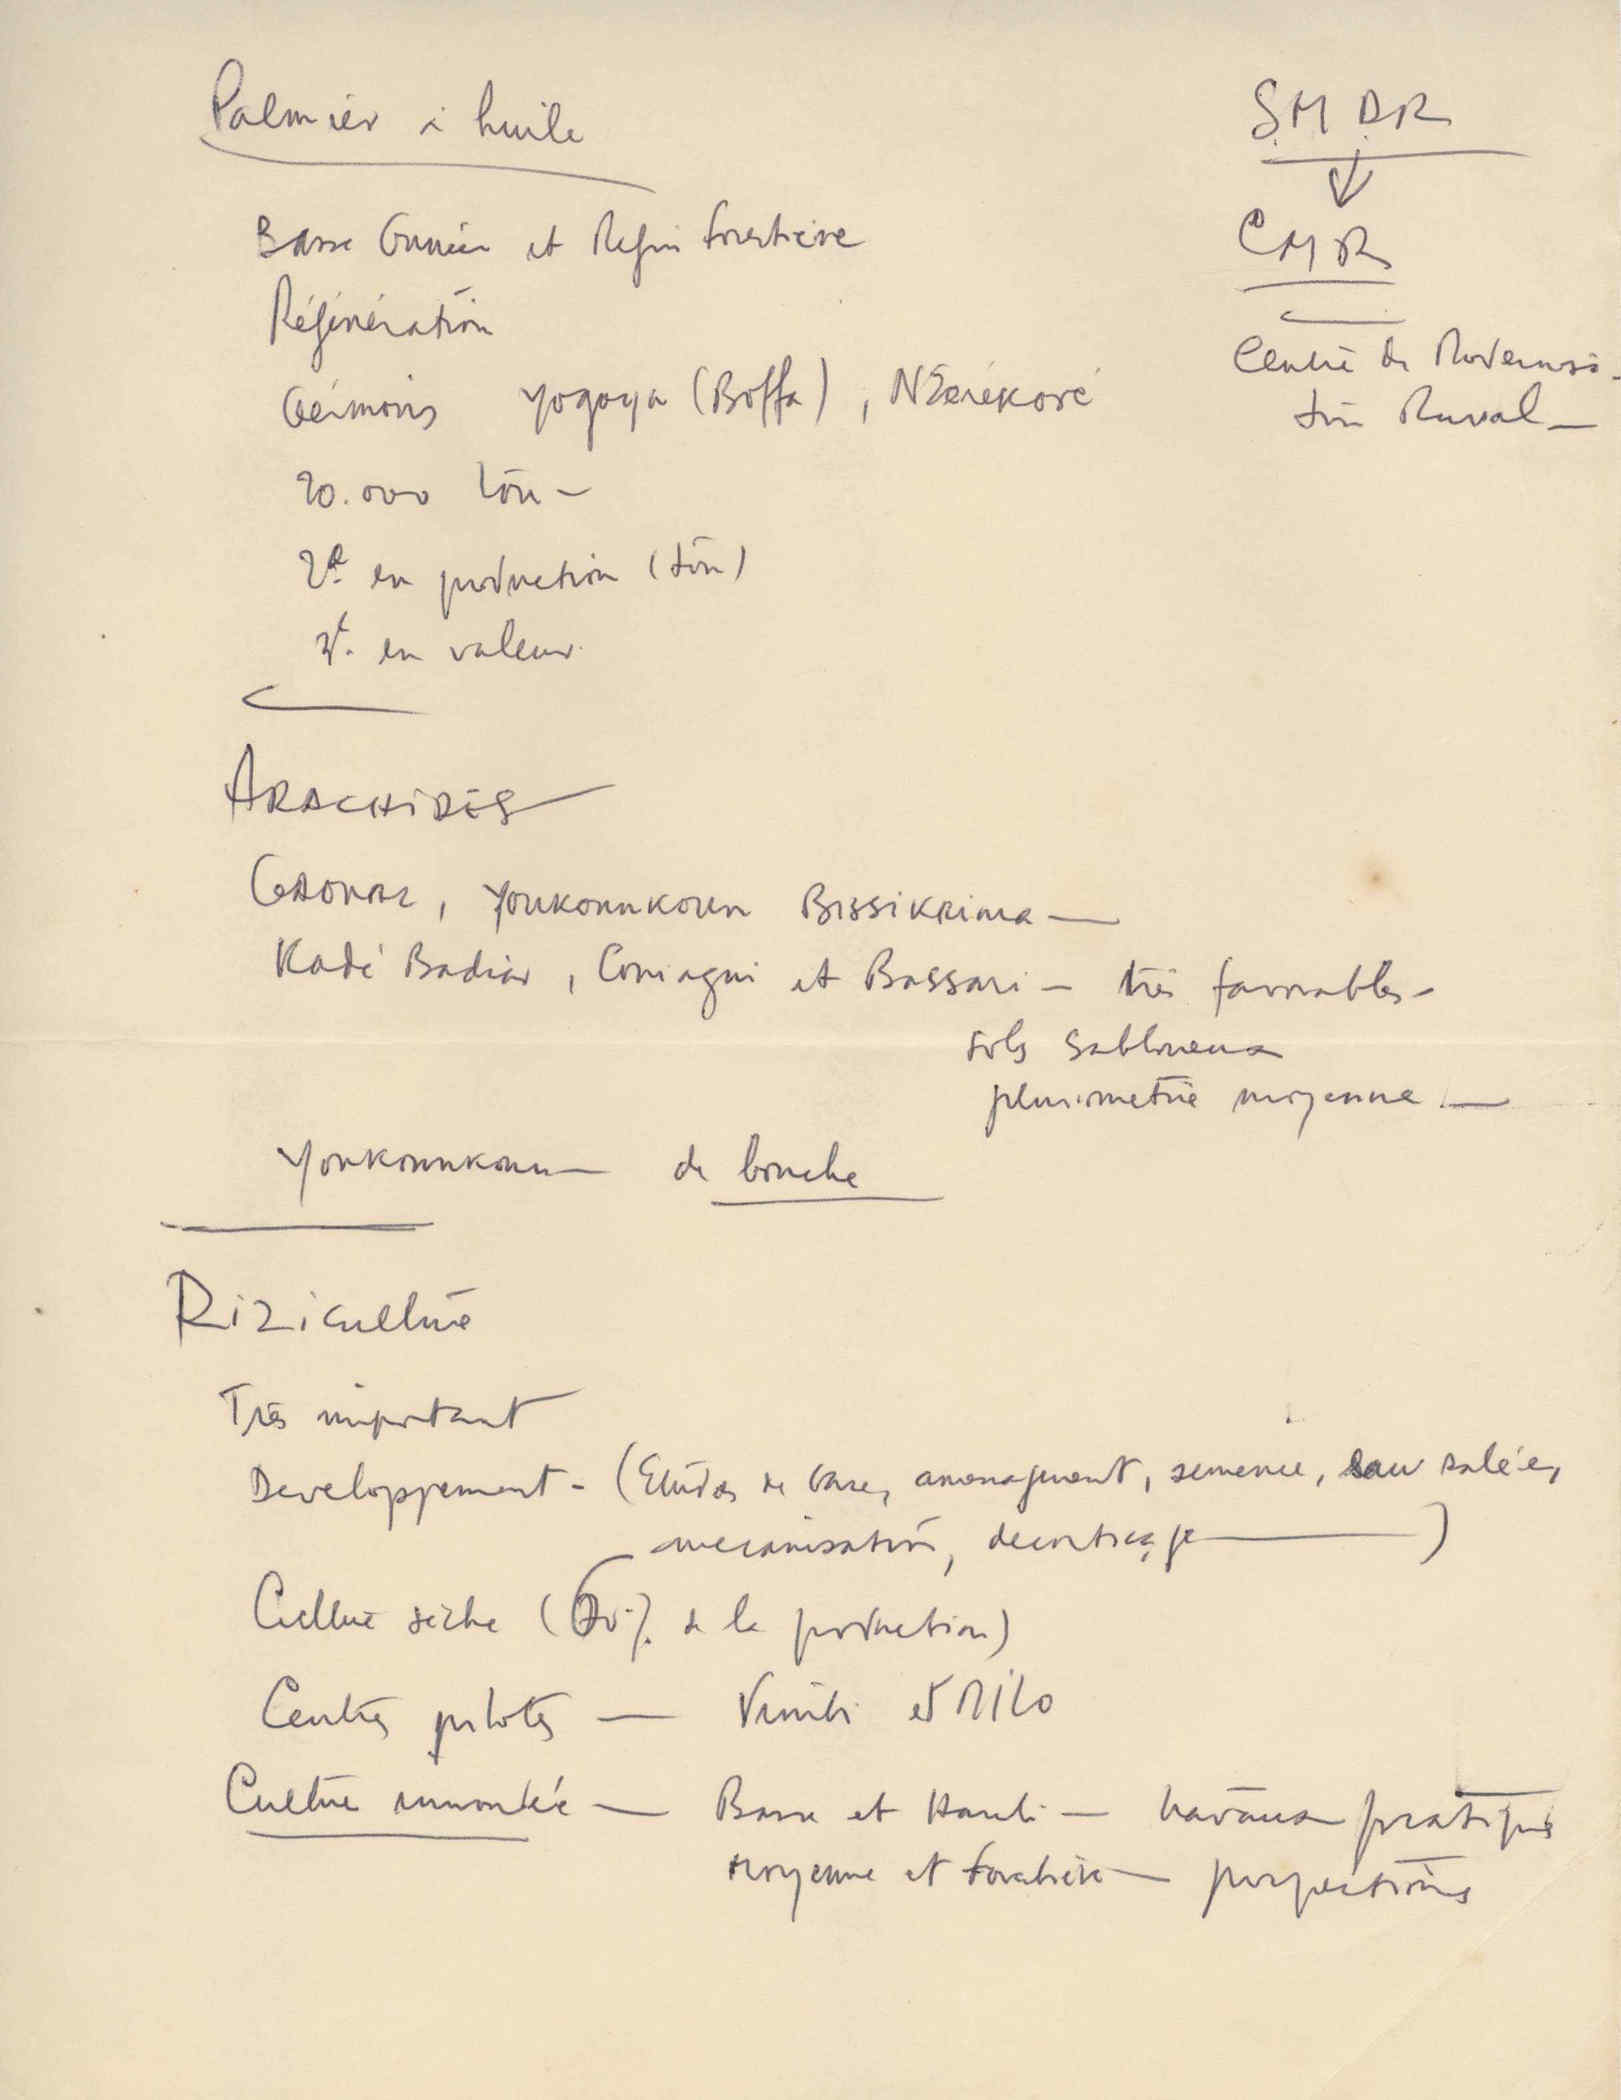 Palmier à huile
Basse Guinée et Region forestière
Régénération
Germoirs Yogoya (Boffa), N'Zérékoré
20.000 ton –
2e en production (ton)
3e en valeur.
S.M.D.R
↓
CMR
Centre de Modernisa-
tion Rural –
ARACHIDES
GAOUAL, Youkounkoun BISSIKRIMA —
Kadé Badiar, Coniagui et Bassari – très favorables –
sols sabloneux
pluviometrie moyenne. —
Youkounkoun — de bouche
Riziculture
Très important
Developpement – (Etudes de base, amenagement, semence, eau salée,
mecanisation, decorticage — )
Culture sèche (60% de la production)
Centres pilotes —
et Milo
Culture innondée — Basse et Haute – travaux pratiques
moyenne et forestière —